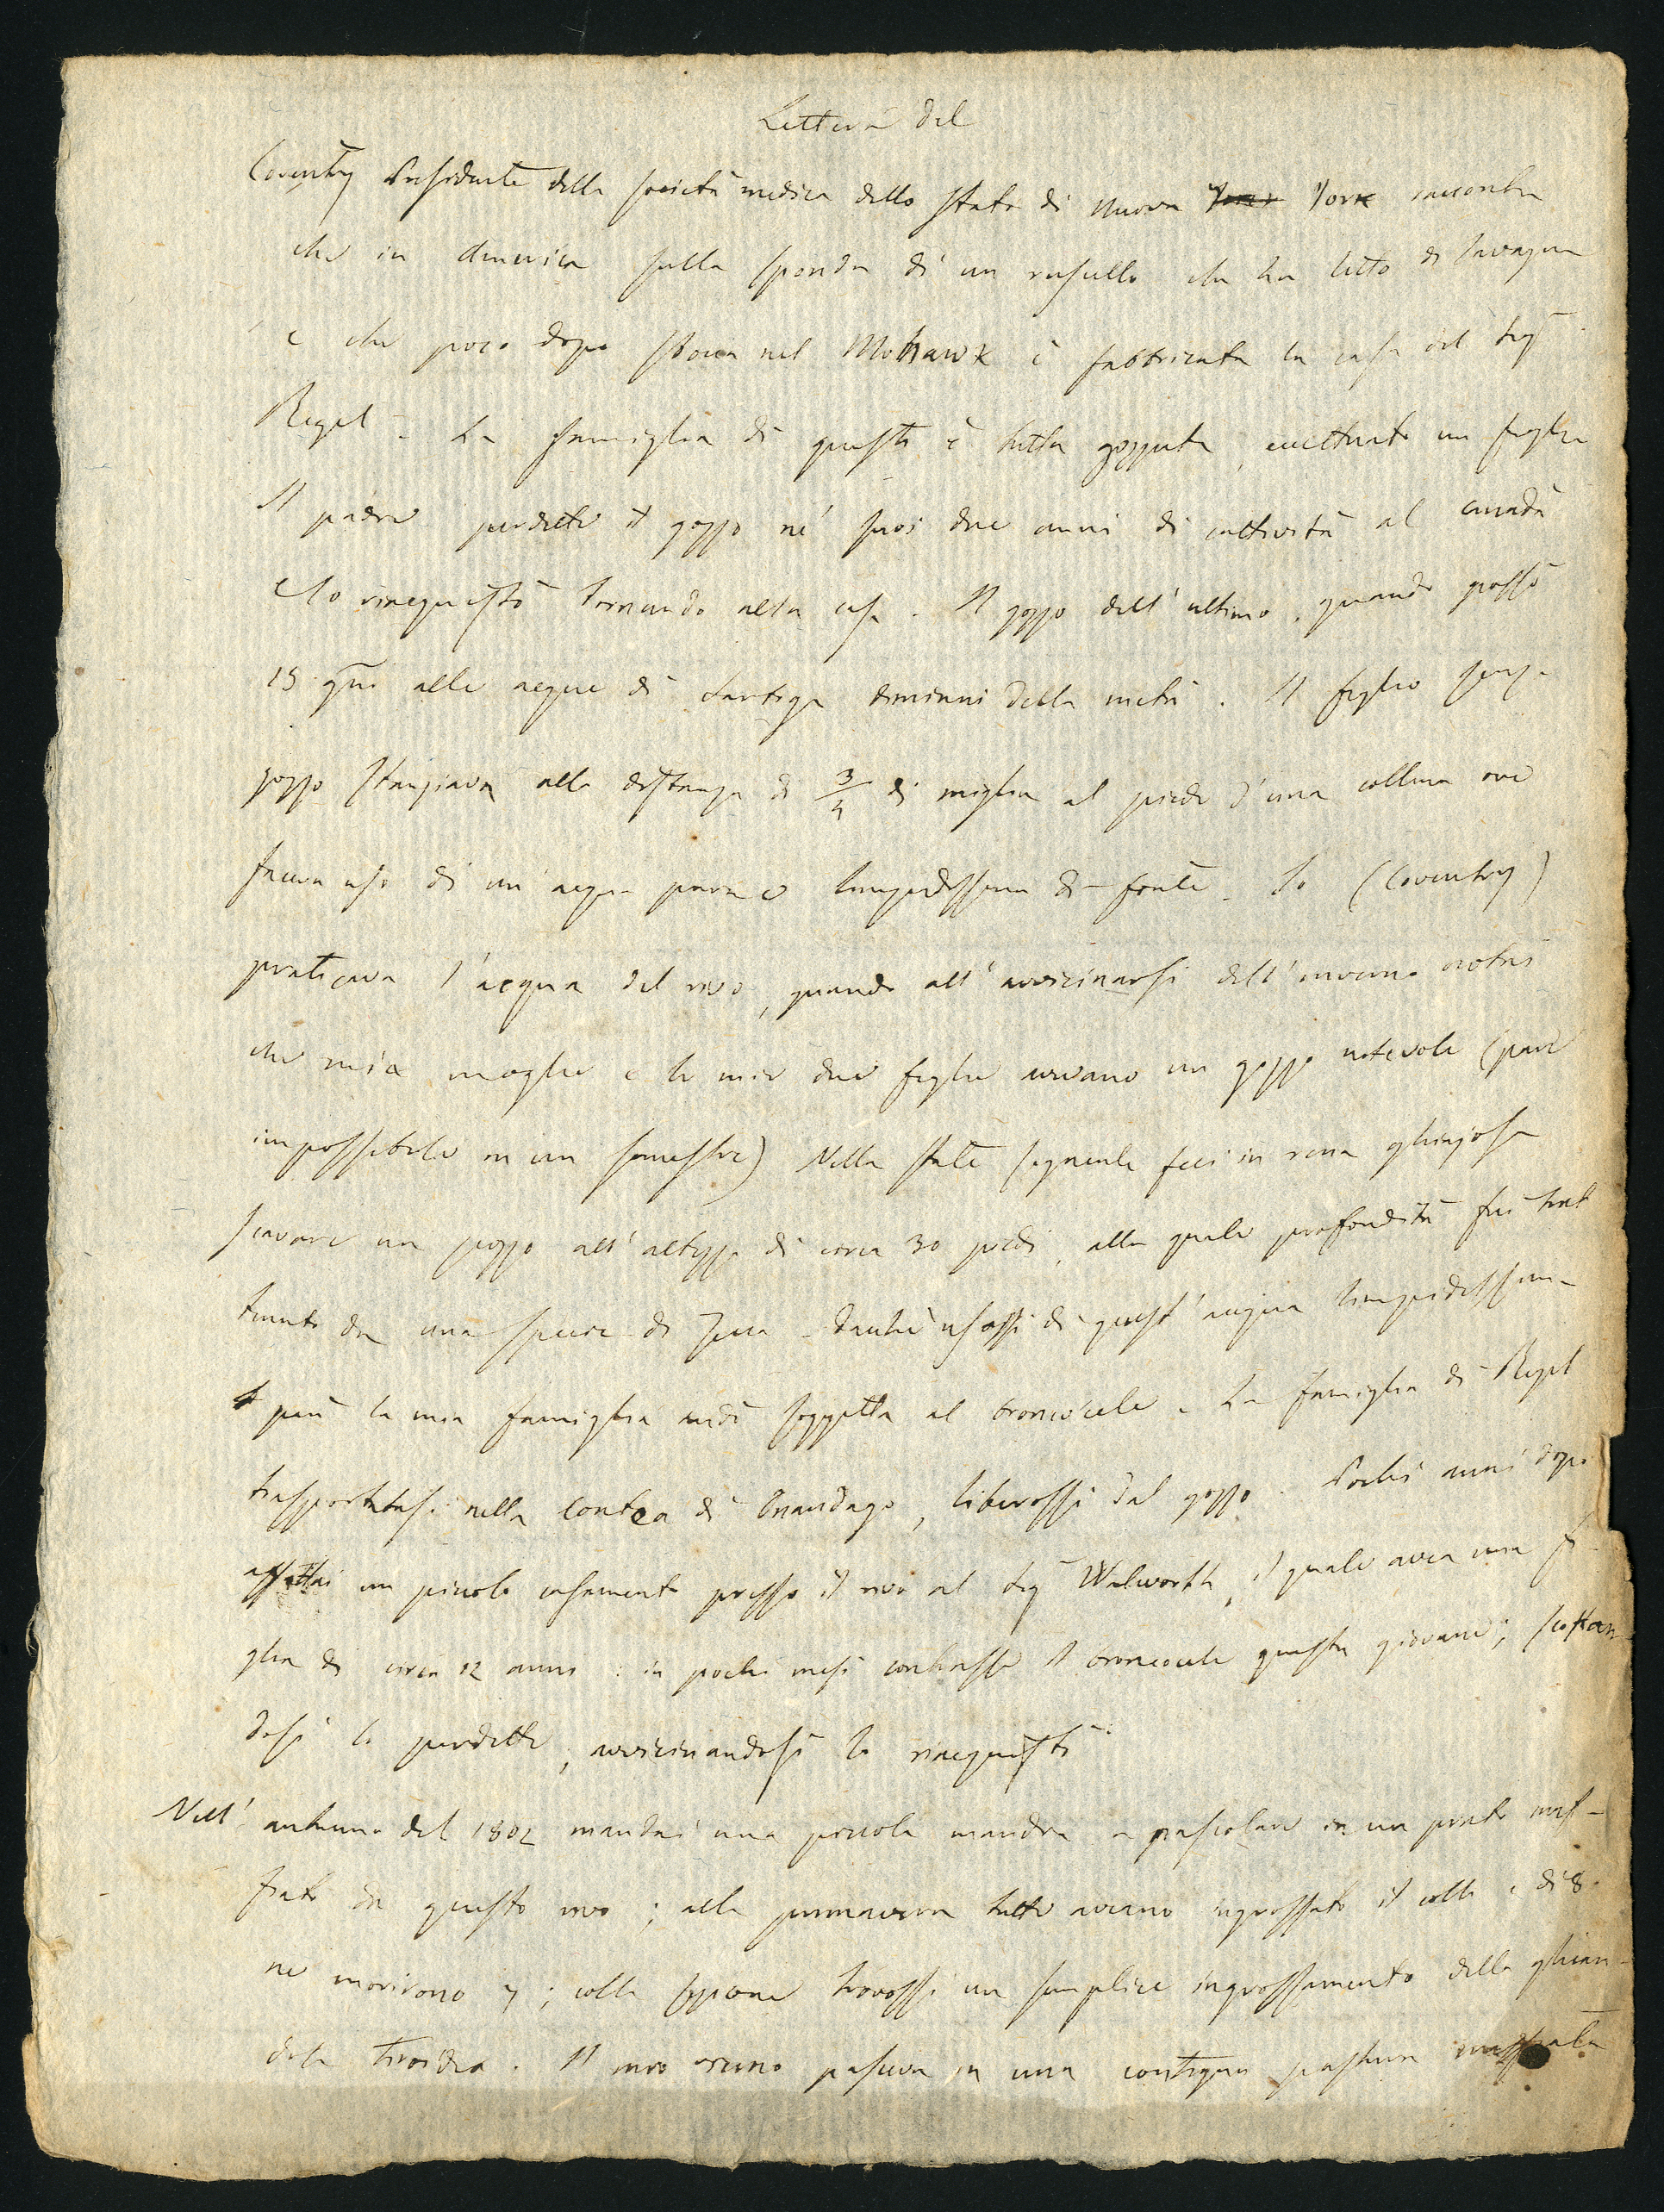 Lettera del
Coventry Presidente della società medica dello stato di Nuova York York racconta
che in America sulla sponda di un ruscello che ha letto di lavagna
e che poco dopo sbocca nel Mohawk è fabbricata la casa del Sig
Regel. La famiglia di questi è tutta gozzuta, eccettuato un figlio
Il padre perdette il gozzo ne' suoi due anni di cattività al Canadà
e lo riacquistò tornando alla casa. Il gozzo dell'ultimo, quando passò
15 gni alle acque di diminuì della metà. Il figlio senza
gozzo stanziava alla distanza di 3/4 di miglia al piede d'una collina ove
faceva uso di un'acqua pura e limpidissima di fonte. Io (Coventry)
praticava l'acqua del rivo, quando all'avvicinarsi dell'inverno notai
che mia moglie e le mie due figlie avevano un gozzo notevole (pare
impossibile in un semestre) Nella state seguente feci in rena ghiajosa
scavare un pozzo all'altezza di circa 30 piedi, alla quale profondità fui trat
tenuto da una specie di . Dacché usossi di quest'acqua limpidissima
più la mia famiglia andò soggetta al broncocele. La famiglia di Regel
trasportatasi nella Contea di Onandago, liberossi dal gozzo. Pochi anni dopo
affittai un piccolo casamento presso il rivo al Sig Walworth, il quale avea una fi-
glia di circa 12 anni: in pochi mesi contrasse il broncocele questa giovane; scostan-
dosi lo perdette, avvicinandosi lo riacquistò
Nell' autunno del 1802 mandai una piccola mandra a pascolare in un prato inaf-
fiato da questo rivo; alla primavera tutte aveano ingrossato il collo e di 8
ne morirono 7; colla sezione trovossi un semplice ingrossamento della ghian-
dola tiroidea. Il mio pasceva in una contigua pastura